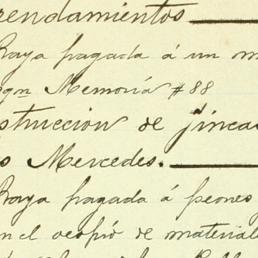 rendamientos
Raya pagada á un m
egn Memoria #88
strucción de finca
s Mercedes.
Raya pagada á peones
n el acopio de material